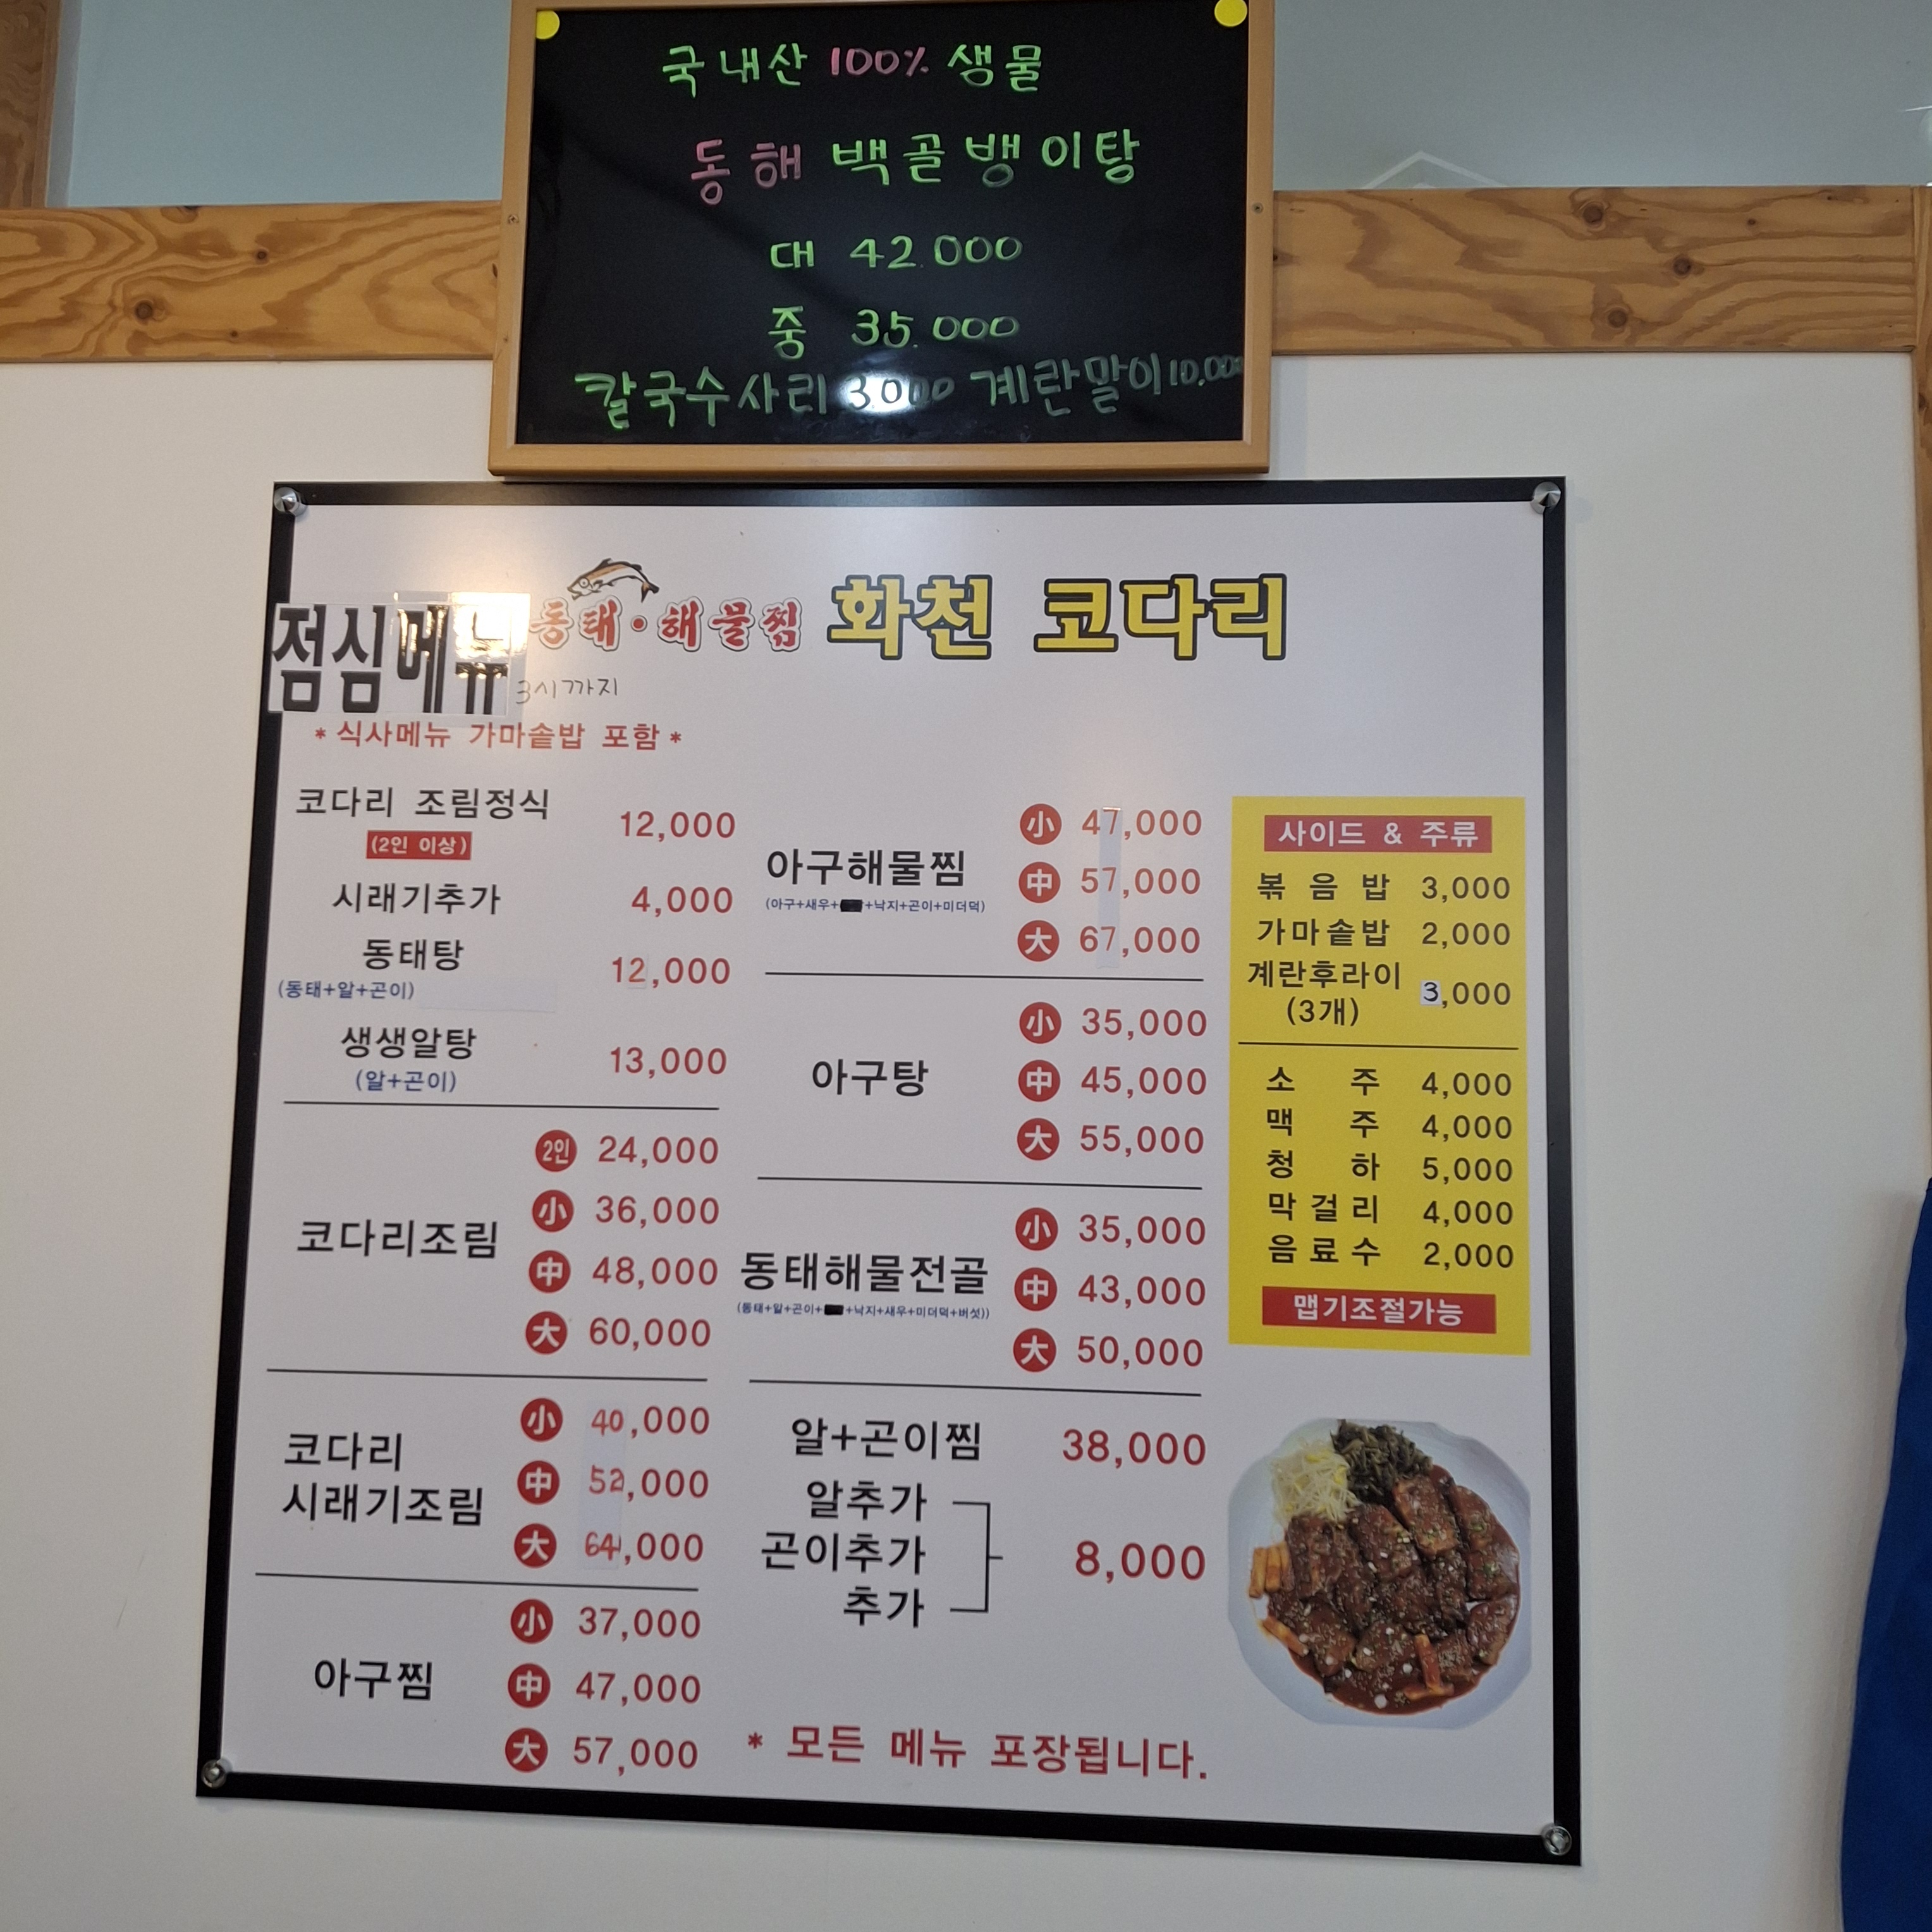 국내산 100% 생물
동해 백골뱅이탕
대 42.000
중 35.000
칼국수사리 3.000 계란말이 10.000
점심메뉴 동태·해물찜 화천 코다리
3시까지
* 식사메뉴 가마솥밥 포함 *
코다리 조림정식 12,000
(2인 이상)
시래기추가 4,000
동태탕 12,000
(동태+알+곤이)
생생알탕 13,000
(알+곤이)
코다리조림
2인 24,000
小 36,000
中 48,000
大 60,000
코다리
시래기조림
小 40,000
中 52,000
大 64,000
아구찜
小 37,000
中 47,000
大 57,000
아구해물찜
(아구+새우+ +낙지+곤이+미더덕)
小 47,000
中 57,000
大 67,000
아구탕
小 35,000
中 45,000
大 55,000
동태해물전골
(동태+알+곤이+ +낙지+새우+미더덕+버섯))
小 35,000
中 43,000
大 50,000
알+곤이찜 38,000
알추가
곤이추가 8,000
추가
* 모든 메뉴 포장됩니다.
사이드 & 주류
볶음밥 3,000
가마솥밥 2,000
계란후라이
(3개) 3,000
소주 4,000
맥주 4,000
청하 5,000
막걸리 4,000
음료수 2,000
맵기조절가능